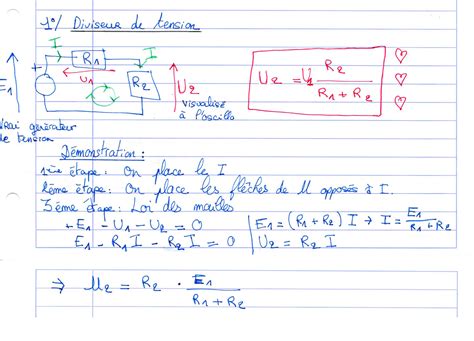 1°/ Diviseur de tension
I
I
R1
E1
U1
R2
U2
visualisée
à l'oscillo
U2 = U1 R2 / R1 + R2
Vrai générateur
de tension
Démonstration :
1ère étape : On place le I
2ème étape : On place les flèches de U opposée à I.
3ème étape : Loi des mailles
+E1 - U1 - U2 = 0
E1 - R1I - R2I = 0
E1 = (R1 + R2) I → I = E1 / R1 + R2
U2 = R2 I
⇒ U2 = R2 . E1 / R1 + R2